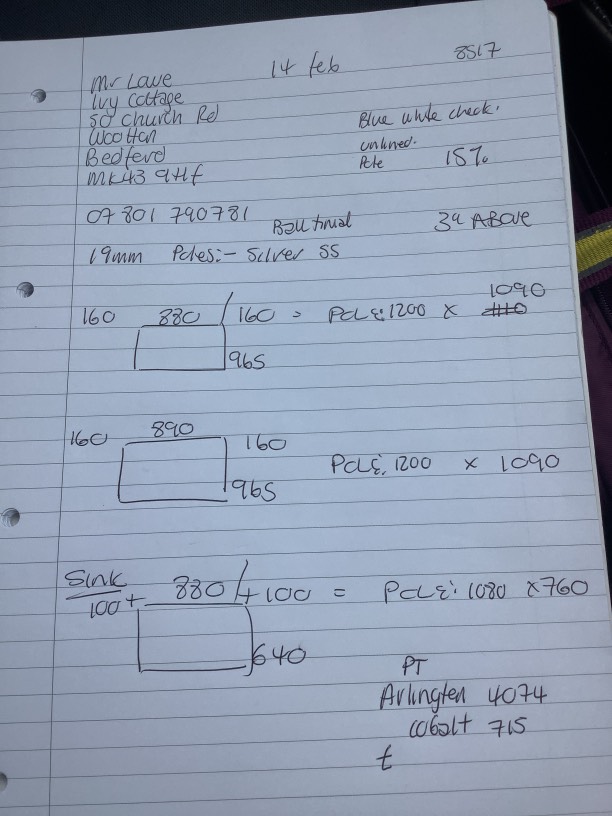 14 feb
8517
Mr Lowe
Ivy Cottage
50 Church Rd
Wootton
Bedford
MK43 9HF
Blue white check.
unlined.
Pole 15%
07801 790781
Ball finial
3" Above
19mm Poles:- Silver SS
160 880 / 160 = POLE: 1200 x 1090
965
160 890 160
POLE. 1200 x 1090
965
Sink
100 + 880 / + 100 = POLE: 1080 x 760
640
PT
Arlington 4074
cobalt 715
£